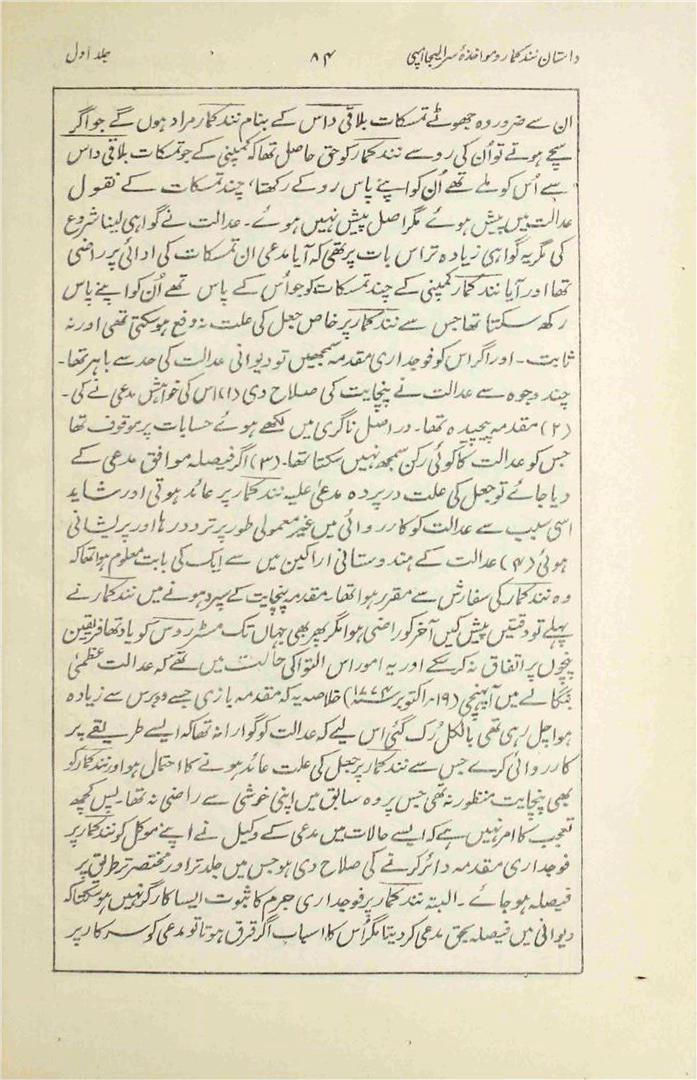 داستان نند کمار و مواخذۂ سر الیجا امپی ۸۴ جلد اول
ان سے ضرور وہ جھوٹے تمسکات بلاقی داس کے بنام نند کمار مراد ہوں گے جو اگر
سچے ہوتے تو اُن کی رو سے نند کمار کو حق حاصل تھا کہ کمپنی کے جو تمسکات بلاقی داس
سے اُس کو ملے تھے اُن کو اپنے پاس روکے رکھتا، چند تمسکات کے نقول
عدالت میں پیش ہوئے مگر اصل پیش نہیں ہوئے۔ عدالت نے گواہی لینا شروع
کی مگر یہ گواہی زیادہ تر اس بات پر تھی کہ آیا مدعی ان تمسکات کی ادائی پر راضی
تھا اور آیا نند کمار کمپنی کے چند تمسکات کو جو اُس کے پاس تھے اُن کو اپنے پاس
رکھ سکتا تھا جس سے نند کمار پر خاص جعل کی علت نہ دفع ہو سکتی تھی اور نہ
ثابت۔ اور اگر اس کو فوجداری مقدمہ سمجھیں تو دیوانی عدالت کی حد سے باہر تھا۔
چند وجوہ سے عدالت نے پنچایت کی صلاح دی (۱) اس کی خواہش مدعی نے کی۔
(۲) مقدمہ پیچیدہ تھا۔ در اصل ناگری میں لکھے ہوئے حسابات پر موقوف تھا
جس کو عدالت کا کوئی رکن سمجھ نہیں سکتا تھا۔ (۳) اگر فیصلہ موافق مدعی کے
دیا جائے تو جعل کی علت در پردہ مدعیٰ علیہ نند کمار پر عائد ہوتی اور شاید
اسی سبب سے عدالت کو کارروائی میں غیر معمولی طور پر تردد رہا اور پریشانی
ہوئی (۴) عدالت کے ہندوستانی اراکین میں سے ایک کی بابت معلوم ہوا تھا کہ
وہ نند کمار کی سفارش سے مقرر ہوا تھا۔ مقدمہ پنچایت کے سپرد ہونے میں نند کمار نے
پہلے تو دقتیں پیش کیں آخر کو راضی ہوا مگر پھر بھی جہاں تک مسٹر روس کو یاد تھا فریقین
پنچوں پر اتفاق نہ کر سکے اور یہ امور اس التوا کی حالت میں تھے کہ عدالت عظمیٰ
بنگالے میں آ پہنچی (۱۹۔ اکتوبر ۱۷۷۴ء) خلاصہ یہ کہ مقدمہ بازی جسے دو برس سے زیادہ
ہوا چل رہی تھی بالکل رُک گئی اس لیے کہ عدالت کو گوارا نہ تھا کہ ایسے طریقے پر
کارروائی کرے جس سے نند کمار پر جعل کی علت عائد ہونے کا احتمال ہو اور نند کمار کو
بھی پنچایت منظور نہ تھی جس پر وہ سابق میں اپنی خوشی سے راضی نہ تھا۔ پس کچھ
تعجب کا امر نہیں ہے کہ ایسے حالات میں مدعی کے وکیل نے اپنے موکل کو نند کمار پر
فوجداری مقدمہ دائر کرنے کی صلاح دی ہو جس میں جلد تر اور مختصر تر طریق پر
فیصلہ ہو جائے۔ البتہ نند کمار پر فوجداری جرم کا ثبوت ایسا کارگر نہیں ہو سکتا کہ
دیوانی میں فیصلہ بحق مدعی کر دیتا مگر اُس کا اسباب اگر قرق ہوتا تو مدعی کو سرکار پر